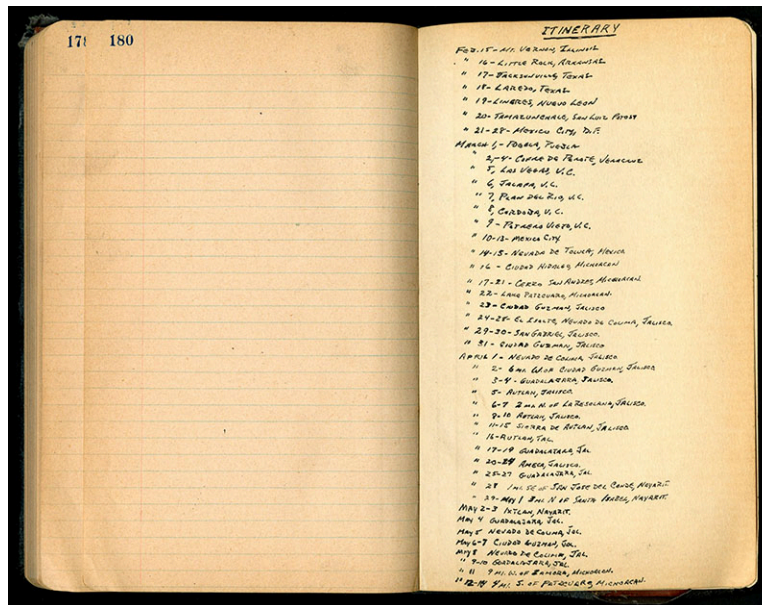 178 180
ITINERARY
FEB. 15 - MT. VERNON, ILLINOIS
" 16 - LITTLE ROCK, ARKANSAS
" 17 - JACKSONVILLE, TEXAS
" 18 - LAREDO, TEXAS
" 19 - LINARES, NUEVO LEON
" 20 - TAMAZUNCHALE, SAN LUIS POTOSI
" 21-28 - MEXICO CITY, D.F.
MARCH 1, - PUEBLA, PUEBLA
" 2,-4 - COFRE DE PEROTE, VERACRUZ
" 5, LAS VEGAS, V.C.
" 6, JALAPA, V.C.
" 7, PLAN DEL RIO, V.C.
" 8, CORDOBA, V.C.
" 9 - POTRERO VIEJO, V.C.
" 10-13 - MEXICO CITY
" 14-15 - NEVADO DE TOLUCA, MEXICO
" 16 - CIUDAD HIDALGO, MICHOACAN
" 17-21 - CERRO SAN ANDRES, MICHOACAN.
" 22 - LAKE PATZCUARO, MICHOACAN.
" 23 - CIUDAD GUZMAN, JALISCO
" 24-28 - EL ISOLTE, NEVADO DE COLIMA, JALISCO.
" 29-30 - SAN GABRIEL, JALISCO.
" 31 - CIUDAD GUZMAN, JALISCO
APRIL 1 - NEVADO DE COLIMA, JALISCO.
" 2 - 6 mi. W. OF CIUDAD GUZMAN, JALISCO
" 3-4 - GUADALAJARA, JALISCO.
" 5 - AUTLAN, JALISCO.
" 6-7 2 mi. N. OF LA RESOLANA, JALISCO.
" 8-10 AUTLAN, JALISCO.
" 11-15 SIERRA DE AUTLAN, JALISCO.
" 16 - AUTLAN, JAL.
" 17-19 GUADALAJARA, JAL.
" 20-24 AMECA, JALISCO.
" 25-27 GUADALAJARA, JAL.
" 28 1 mi. SE OF SAN JOSE DEL CONDE, NAYARIT.
" 29 - MAY 1 2 mi. N OF SANTA ISABEL, NAYARIT.
MAY 2-3 IXTLAN, NAYARIT.
MAY 4 GUADALAJARA, JAL.
MAY 5 NEVADO DE COLIMA, JAL.
MAY 6-7 CIUDAD GUZMAN, JAL.
MAY 8 NEVADO DE COLIMA, JAL.
" 9-10 GUADALAJARA, JAL.
" 11 9 MI. W. OF ZAMORA, MICHOACAN.
" 12-14 4 MI. S. OF PATZCUARO, MICHOACAN.